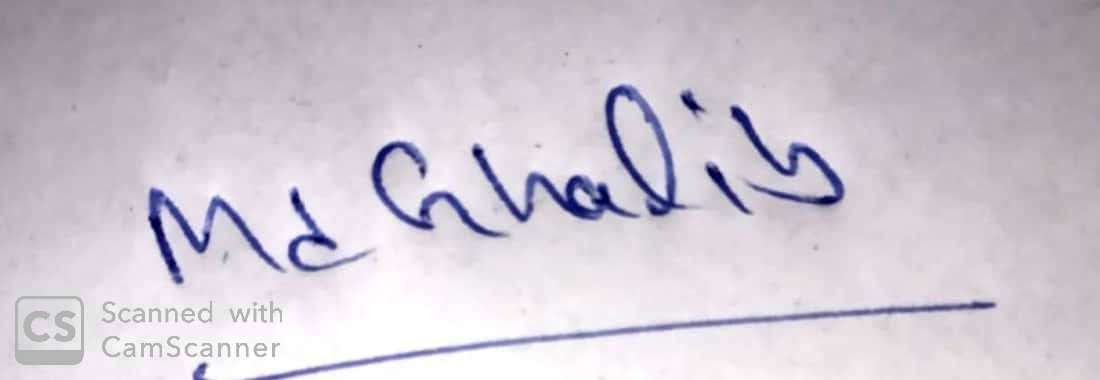 Md Ghalib
CS Scanned with
CamScanner